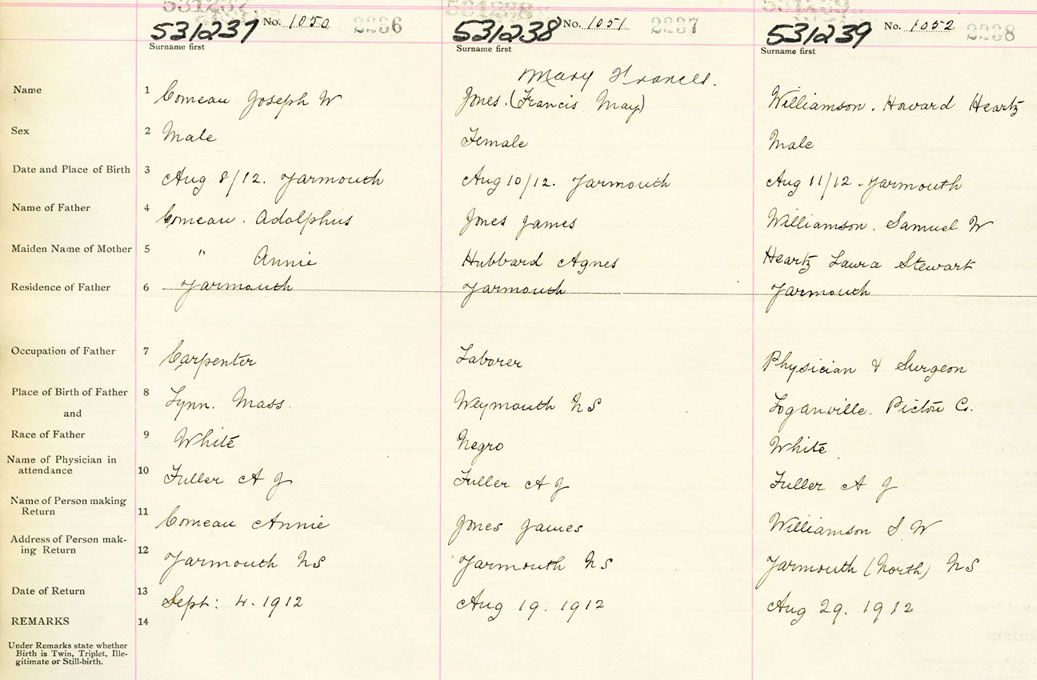 531237 No. 1050 2236 531238 No. 1051 2237 531239 No. 1052 2238
Surname first Surname first Surname first
Mary Frances.
Name 1 Comeau Joseph W Jones. (Francis May) Williamson. Howard Heartz
Sex 2 Male Female Male
Date and Place of Birth 3 Aug 8/12. Yarmouth Aug 10/12. Yarmouth Aug 11/12 - Yarmouth
Name of Father 4 Comeau. Adolphus Jones James Williamson. Samuel W
Maiden Name of Mother 5 " Annie Hubbard Agnes Heartz Laura Stewart
Residence of Father 6 Yarmouth Yarmouth Yarmouth
Occupation of Father 7 Carpenter Laborer Physician & Surgeon
Place of Birth of Father 8 Lynn. Mass. Weymouth NS Loganville. Pictou Co.
and
Race of Father 9 White Negro White.
Name of Physician in
attendance 10 Fuller A J Fuller A J Fuller A J
Name of Person making
Return 11 Comeau Annie Jones James Williamson S. W
Address of Person mak-
ing Return 12 Yarmouth NS Yarmouth NS Yarmouth (North) NS
Date of Return 13 Sept: 4. 1912 Aug 19. 1912 Aug 29. 1912
REMARKS 14
Under Remarks state whether
Birth is Twin, Triplet, Ille-
gitimate or Still-birth.